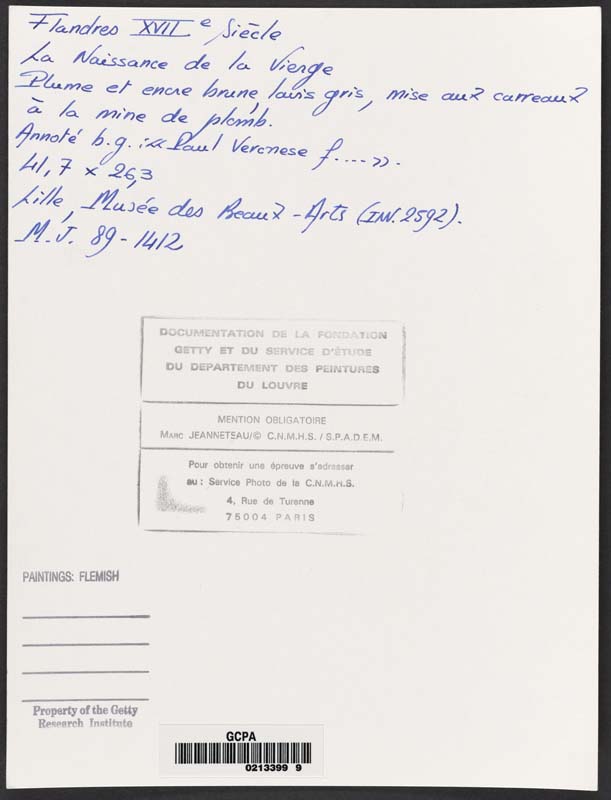 Flandres XVII e Siècle
La Naissance de la Vierge
Plume et encre brune, lavis gris, mise aux carreaux
à la mine de plomb.
Annoté b.g. : « Paul Veronese f.... ».
41,7 x 26,3
Lille, Musée des Beaux-Arts (INV. 2592).
M.J. 89-1412
DOCUMENTATION DE LA FONDATION
GETTY ET DU SERVICE D'ÉTUDE
DU DEPARTEMENT DES PEINTURES
DU LOUVRE
MENTION OBLIGATOIRE
MARC JEANNETEAU/© C.N.M.H.S. / S.P.A.D.E.M.
Pour obtenir une épreuve s'adresser
au : Service Photo de la C.N.M.H.S.
4, Rue de Turenne
75004 PARIS
PAINTINGS: FLEMISH
Property of the Getty
Research Institute
GCPA
0213399 9